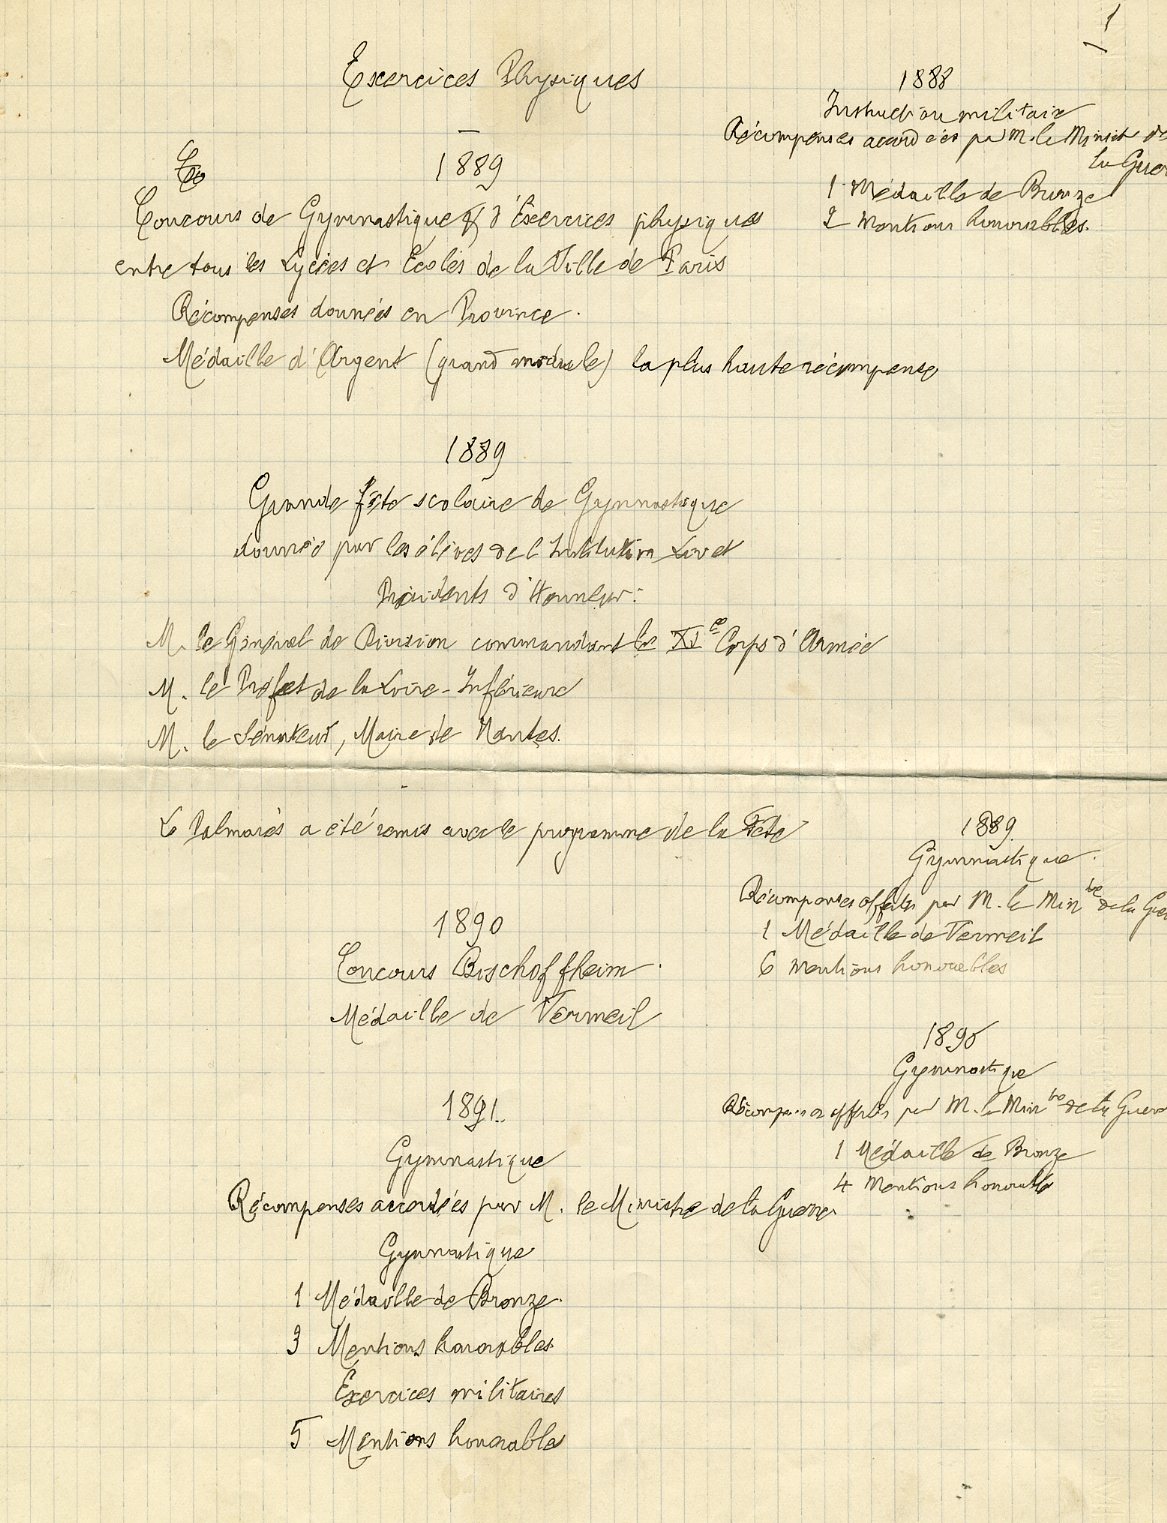 1
Exercices Physiques
1888
Instruction militaire
Récompenses accordées par M. le Ministre de
la Guer
1 Médaille de Bronze
2 Mentions honorables.
1889
Concours de Gymnastique & d'Exercices physiques
entre tous les Lycées et Ecoles de la Ville de Paris
Récompenses données en Province.
Médaille d'Argent (grand module) la plus haute récompense
1889
Grande fête scolaire de Gymnastique
donnée par les élèves de l'Institution Livet
Présidents d'Honneur:
M. le Général de Division commandant le XIe Corps d'Armée
M. le Préfet de la Loire-Inférieure
M. le Sénateur, Maire de Nantes.
Le Palmarès a été remis avec le programme de la Fête
1889
Gymnastique.
Récompenses offertes par M. le Mintre de la Guer
1 Médaille de Vermeil
6 Mentions honorables
1890
Concours Bischoffheim.
Médaille de Vermeil
1890
Gymnastique
Récompenses offertes par M. le Mintre de la Guerre
1 Médaille de Bronze
4 Mentions honorables
1891.
Gymnastique
Récompenses accordées par M. le Ministre de la Guerre
Gymnastique
1 Médaille de Bronze.
3 Mentions honorables
Exercices militaires
5 Mentions honorables